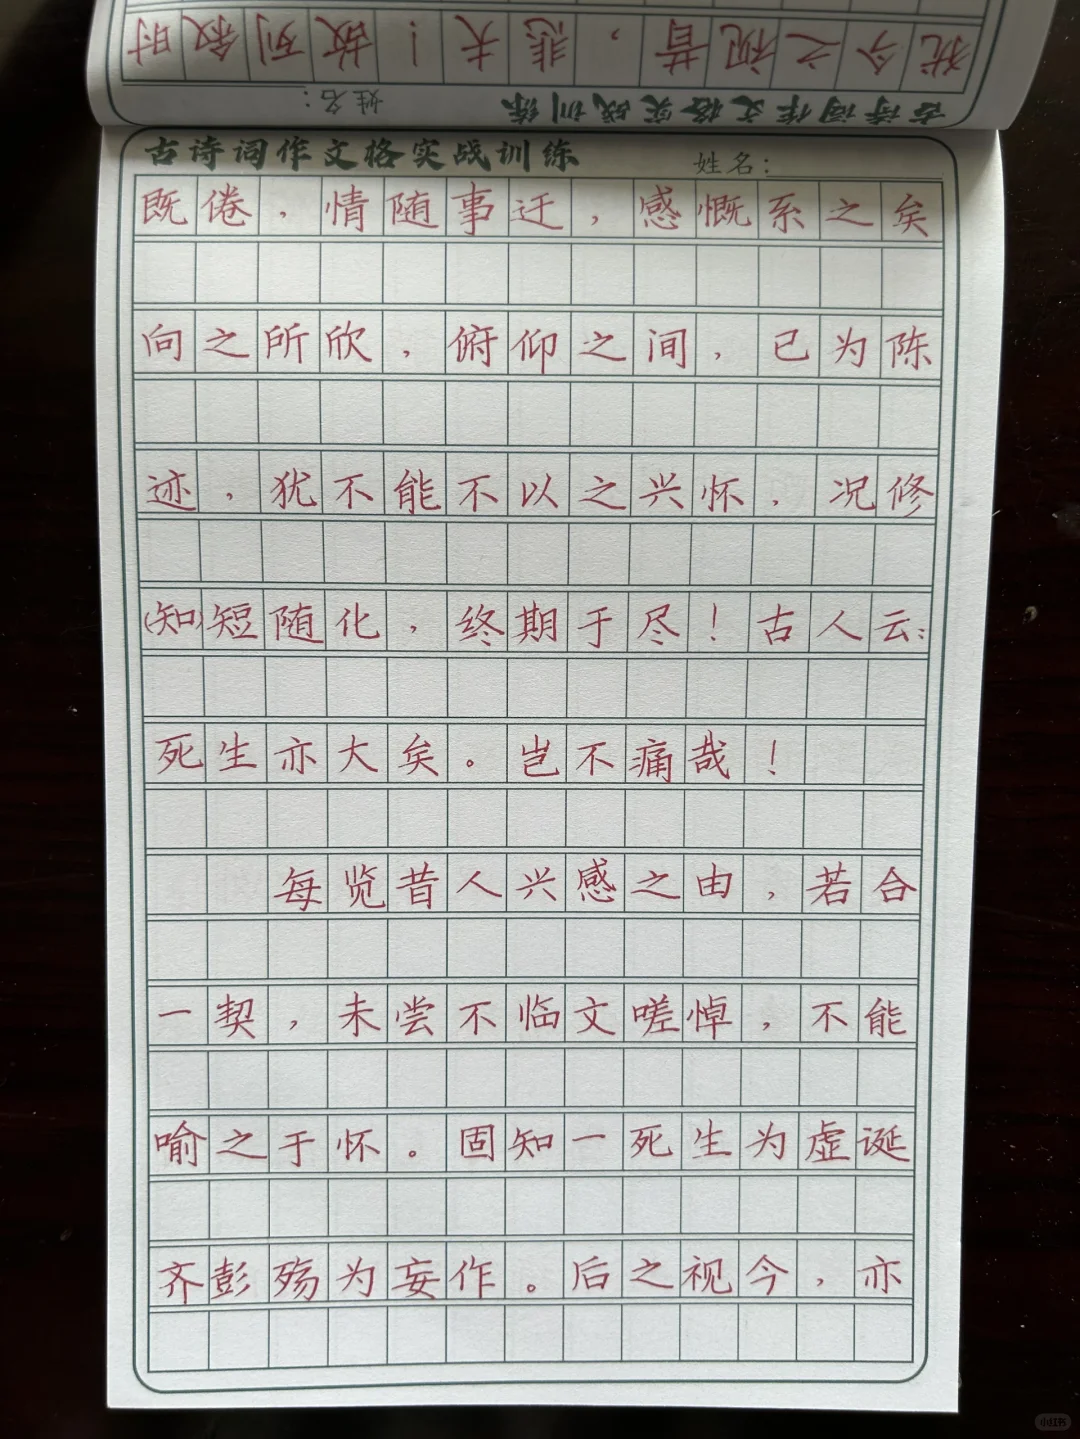 犹今之视昔，悲夫！故列叙时
古诗词作文格实战训练 姓名：
古诗词作文格实战训练 姓名：
既倦，情随事迁，感慨系之矣
向之所欣，俯仰之间，已为陈
迹，犹不能不以之兴怀，况修
(知)短随化，终期于尽！古人云：
死生亦大矣。岂不痛哉！
每览昔人兴感之由，若合
一契，未尝不临文嗟悼，不能
喻之于怀。固知一死生为虚诞
齐彭殇为妄作。后之视今，亦
小红书